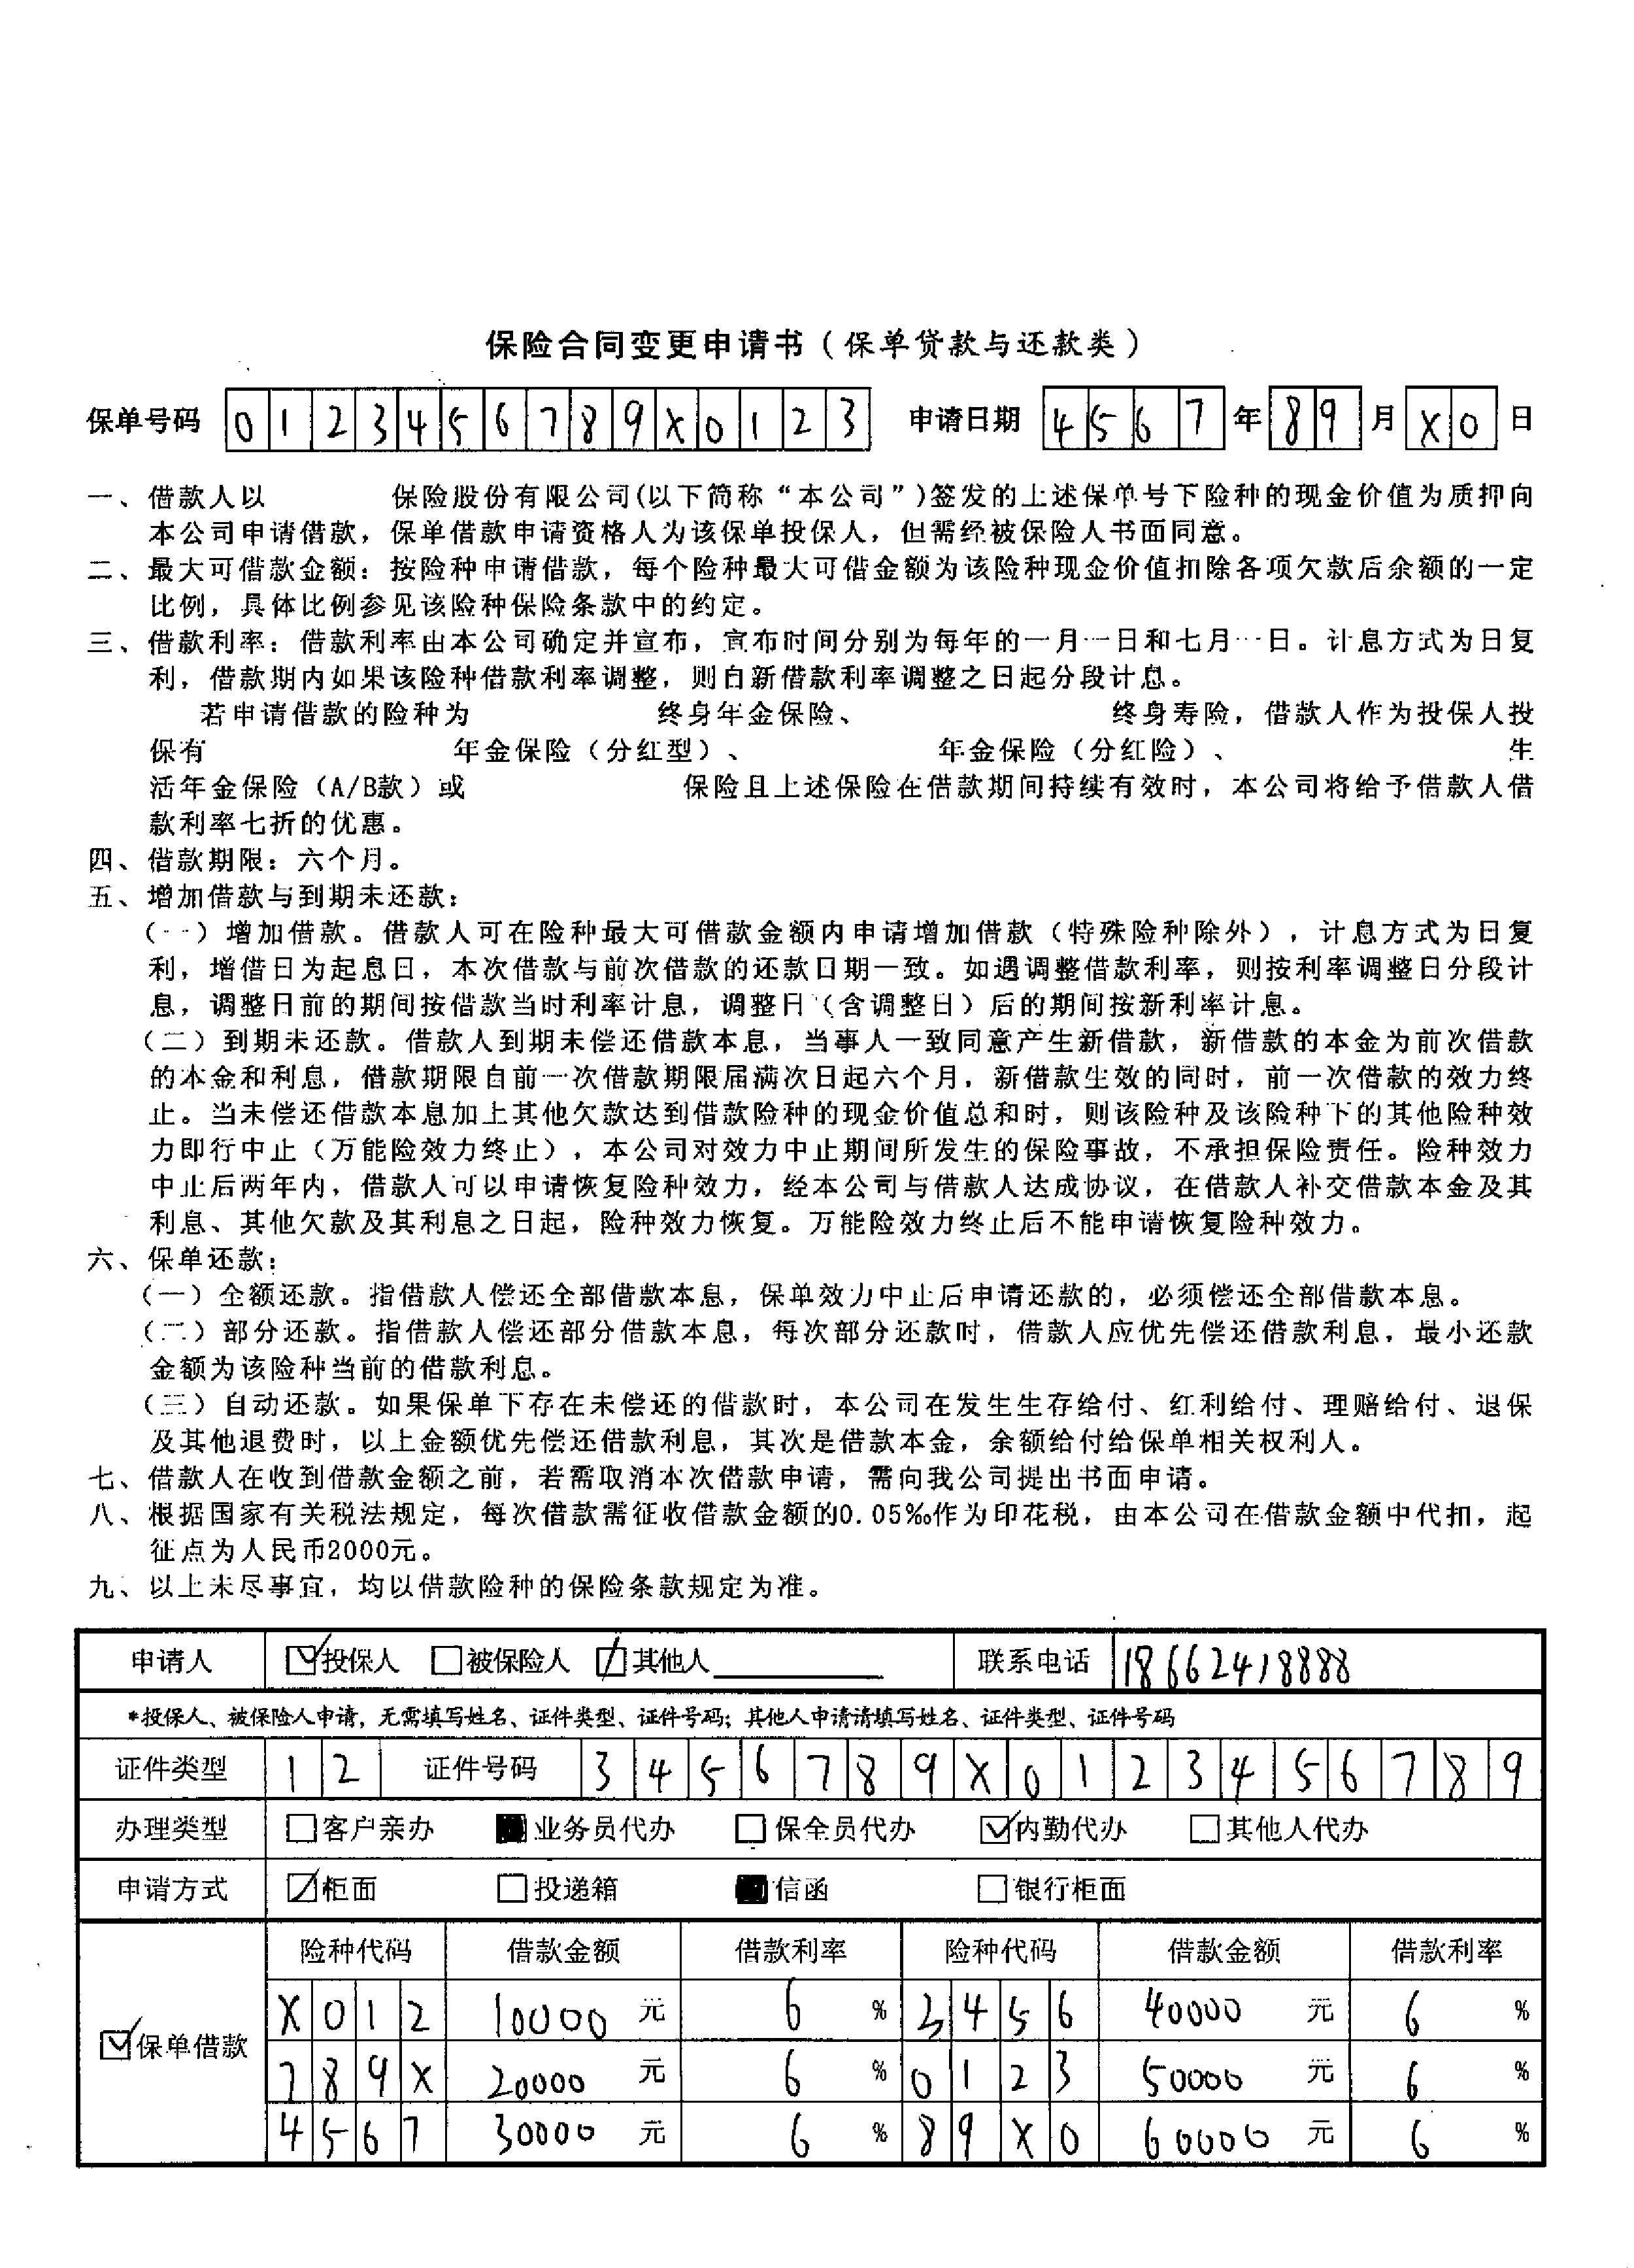 保险合同变更申请书（保单贷款与还款类）
保单号码 0123456789X0123 申请日期 4567年89月X0日
一、借款人以 保险股份有限公司(以下简称“本公司”)签发的上述保单号下险种的现金价值为质押向
本公司申请借款，保单借款申请资格人为该保单投保人，但需经被保险人书面同意。
二、最大可借款金额：按险种申请借款，每个险种最大可借金额为该险种现金价值扣除各项欠款后余额的一定
比例，具体比例参见该险种保险条款中的约定。
三、借款利率：借款利率由本公司确定并宣布，宣布时间分别为每年的一月一日和七月一日。计息方式为日复
利，借款期内如果该险种借款利率调整，则自新借款利率调整之日起分段计息。
若申请借款的险种为 终身年金保险、 终身寿险，借款人作为投保人投
保有 年金保险（分红型）、 年金保险（分红险）、 生
活年金保险（A/B款）或 保险且上述保险在借款期间持续有效时，本公司将给予借款人借
款利率七折的优惠。
四、借款期限：六个月。
五、增加借款与到期未还款：
（一）增加借款。借款人可在险种最大可借款金额内申请增加借款（特殊险种除外），计息方式为日复
利，增借日为起息日，本次借款与前次借款的还款日期一致。如遇调整借款利率，则按利率调整日分段计
息，调整日前的期间按借款当时利率计息，调整日（含调整日）后的期间按新利率计息。
（二）到期未还款。借款人到期未偿还借款本息，当事人一致同意产生新借款，新借款的本金为前次借款
的本金和利息，借款期限自前一次借款期限届满次日起六个月，新借款生效的同时，前一次借款的效力终
止。当未偿还借款本息加上其他欠款达到借款险种的现金价值总和时，则该险种及该险种下的其他险种效
力即行中止（万能险效力终止），本公司对效力中止期间所发生的保险事故，不承担保险责任。险种效力
中止后两年内，借款人可以申请恢复险种效力，经本公司与借款人达成协议，在借款人补交借款本金及其
利息、其他欠款及其利息之日起，险种效力恢复。万能险效力终止后不能申请恢复险种效力。
六、保单还款：
（一）全额还款。指借款人偿还全部借款本息，保单效力中止后申请还款的，必须偿还全部借款本息。
（二）部分还款。指借款人偿还部分借款本息，每次部分还款时，借款人应优先偿还借款利息，最小还款
金额为该险种当前的借款利息。
（三）自动还款。如果保单下存在未偿还的借款时，本公司在发生生存给付、红利给付、理赔给付、退保
及其他退费时，以上金额优先偿还借款利息，其次是借款本金，余额给付给保单相关权利人。
七、借款人在收到借款金额之前，若需取消本次借款申请，需向我公司提出书面申请。
八、根据国家有关税法规定，每次借款需征收借款金额的0.05‰作为印花税，由本公司在借款金额中代扣，起
征点为人民币2000元。
九、以上未尽事宜，均以借款险种的保险条款规定为准。
申请人 投保人 被保险人 其他人 联系电话 18662418888
*投保人、被保险人申请，无需填写姓名、证件类型、证件号码；其他人申请请填写姓名、证件类型、证件号码
证件类型 12 证件号码 3456789X0123456789
办理类型 客户亲办 业务员代办 保全员代办 内勤代办 其他人代办
申请方式 柜面 投递箱 信函 银行柜面
险种代码 借款金额 借款利率 险种代码 借款金额 借款利率
X012 10000元 6% 3456 40000元 6%
保单借款
789X 20000元 6% 0123 50000元 6%
4567 30000元 6% 89X0 60000元 6%